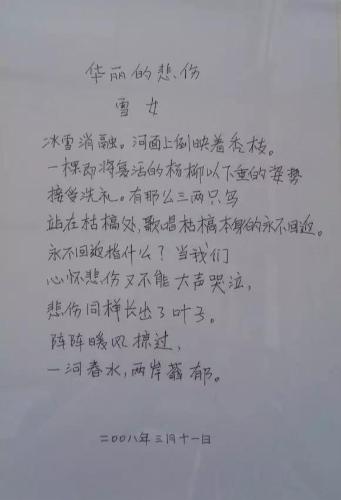 华丽的悲伤
雪女
冰雪消融。河面上倒映着秃枝。
一棵即将复活的杨柳以下垂的姿势
接受洗礼。有那么三两只鸟
站在枯槁处,歌唱枯槁本身的永不回返。
永不回返指什么?当我们
心怀悲伤又不能大声哭泣,
悲伤同样长出了叶子。
阵阵暖风掠过,
一河春水,两岸蓊郁。
二〇〇八年三月十一日